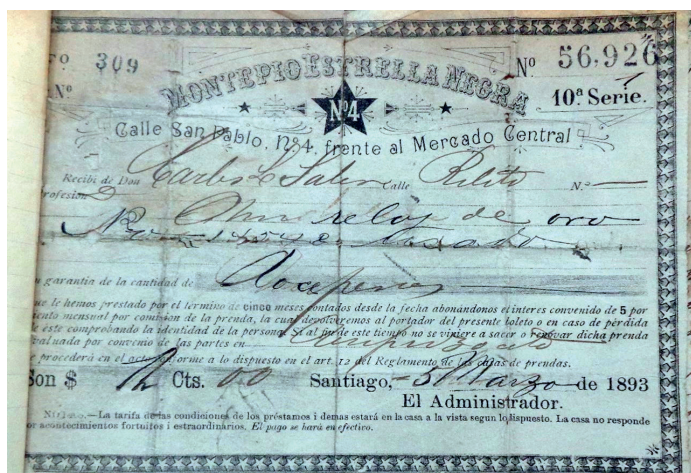 Fº 309 Nº 56,926
Nº MONTEPIO ESTRELLA NEGRA 10ª Serie.
Nº4
Calle San Pablo, Nº4, frente al Mercado Central
Recibi de Don Carlos Calle N.º
rofesion
Un reloj de oro
No usado
garantia de la cantidad de doce pesos
ue le hemos prestado por el término de cinco meses contados desde la fecha abonándonos el interes convenido de 5 por
ento mensual por comision de la prenda, la cual devolveremos al portador del presente boleto o en caso de pérdida
e éste comprobando la identidad de la persona. Si al fin de este tiempo no se viniere a sacar o renovar dicha prenda
valuada por convenio de las partes en
e procederá en el acto conforme a lo dispuesto en el art. 12 del Reglamento de las casas de prendas.
Son $ 12 Cts. 00 Santiago, 5 Marzo de 1893
El Administrador.
—La tarifa de las condiciones de los préstamos i demas estará en la casa a la vista segun lo dispuesto. La casa no responde
or acontecimientos fortuitos i estraordinarios. El pago se hará en efectivo.